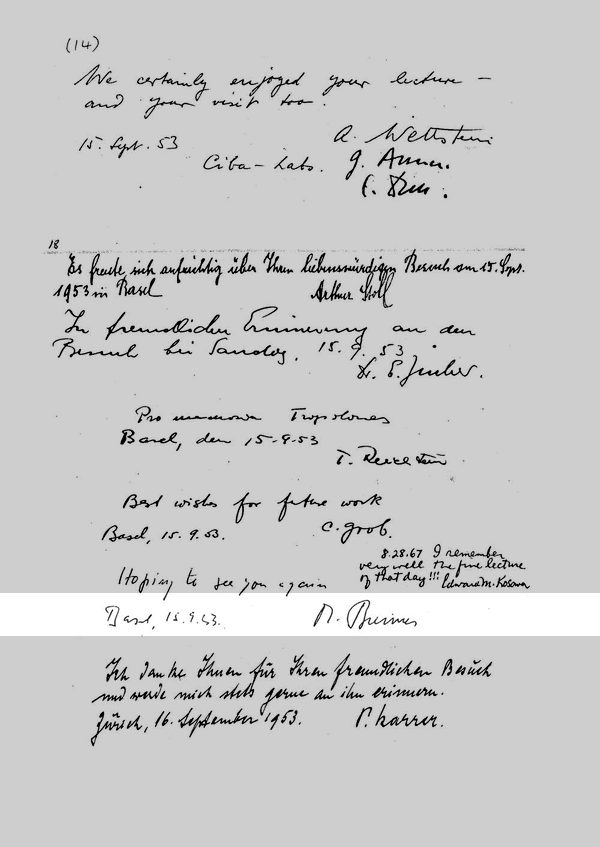 (14)
We certainly enjoyed your lecture –
and your visit too.
15. Sept. 53
A. Wettstein
Ciba – Labs. G. Anner.
18
Es freute sich aufrichtig über Ihren liebenswürdigen Besuch am 15. Sept.
1953 in Basel Arthur Stoll
In freundlicher Erinnerung an den
Besuch bei Sandoz, 15. 9. 53.
Dr. E.
Pro memoria Tropolones
Basel, den 15.9.53
T. Reichstein
Best wishes for future work
Basel, 15. 9. 53. C. Grob.
8.28.67 I remember
very well the fine lecture
of that day!!! Edward M. Kosower
Hoping to see you again
Basel, 15.9.53. M. Brenner
Ich danke Ihnen für Ihren freundlichen Besuch
und werde mich stets gerne an ihn erinnern.
Zürich, 16. September 1953. P. Karrer.